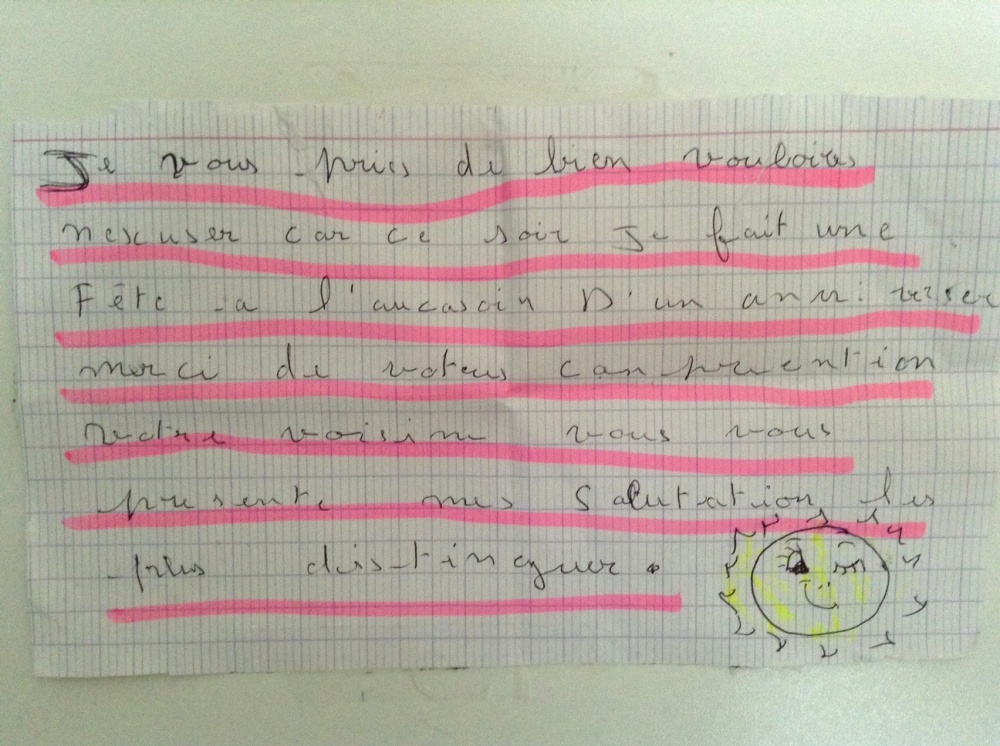 Je vous pries de bien vouloires
mexcuser car ce soir Je fait une
Fête a l'aucasoin D'un anni.verser
merci de voters conprention
votre voisine vous vous
presente mes Salutation les
plus distinquer.